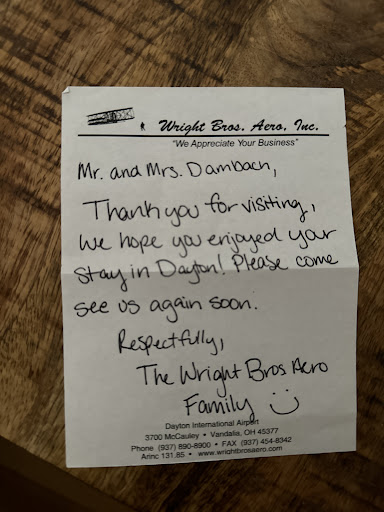 Wright Bros. Aero, Inc.
"We Appreciate Your Business"
Mr. and Mrs. Dambach,
Thank you for visiting,
we hope you enjoyed your
stay in Dayton! Please come
see us again soon.
Respectfully,
The Wright Bros Aero
Family
Dayton International Airport
3700 McCauley • Vandalia, OH 45377
Phone (937) 890-8900 • FAX (937) 454-8342
Arinc 131.85 • www.wrightbrosaero.com